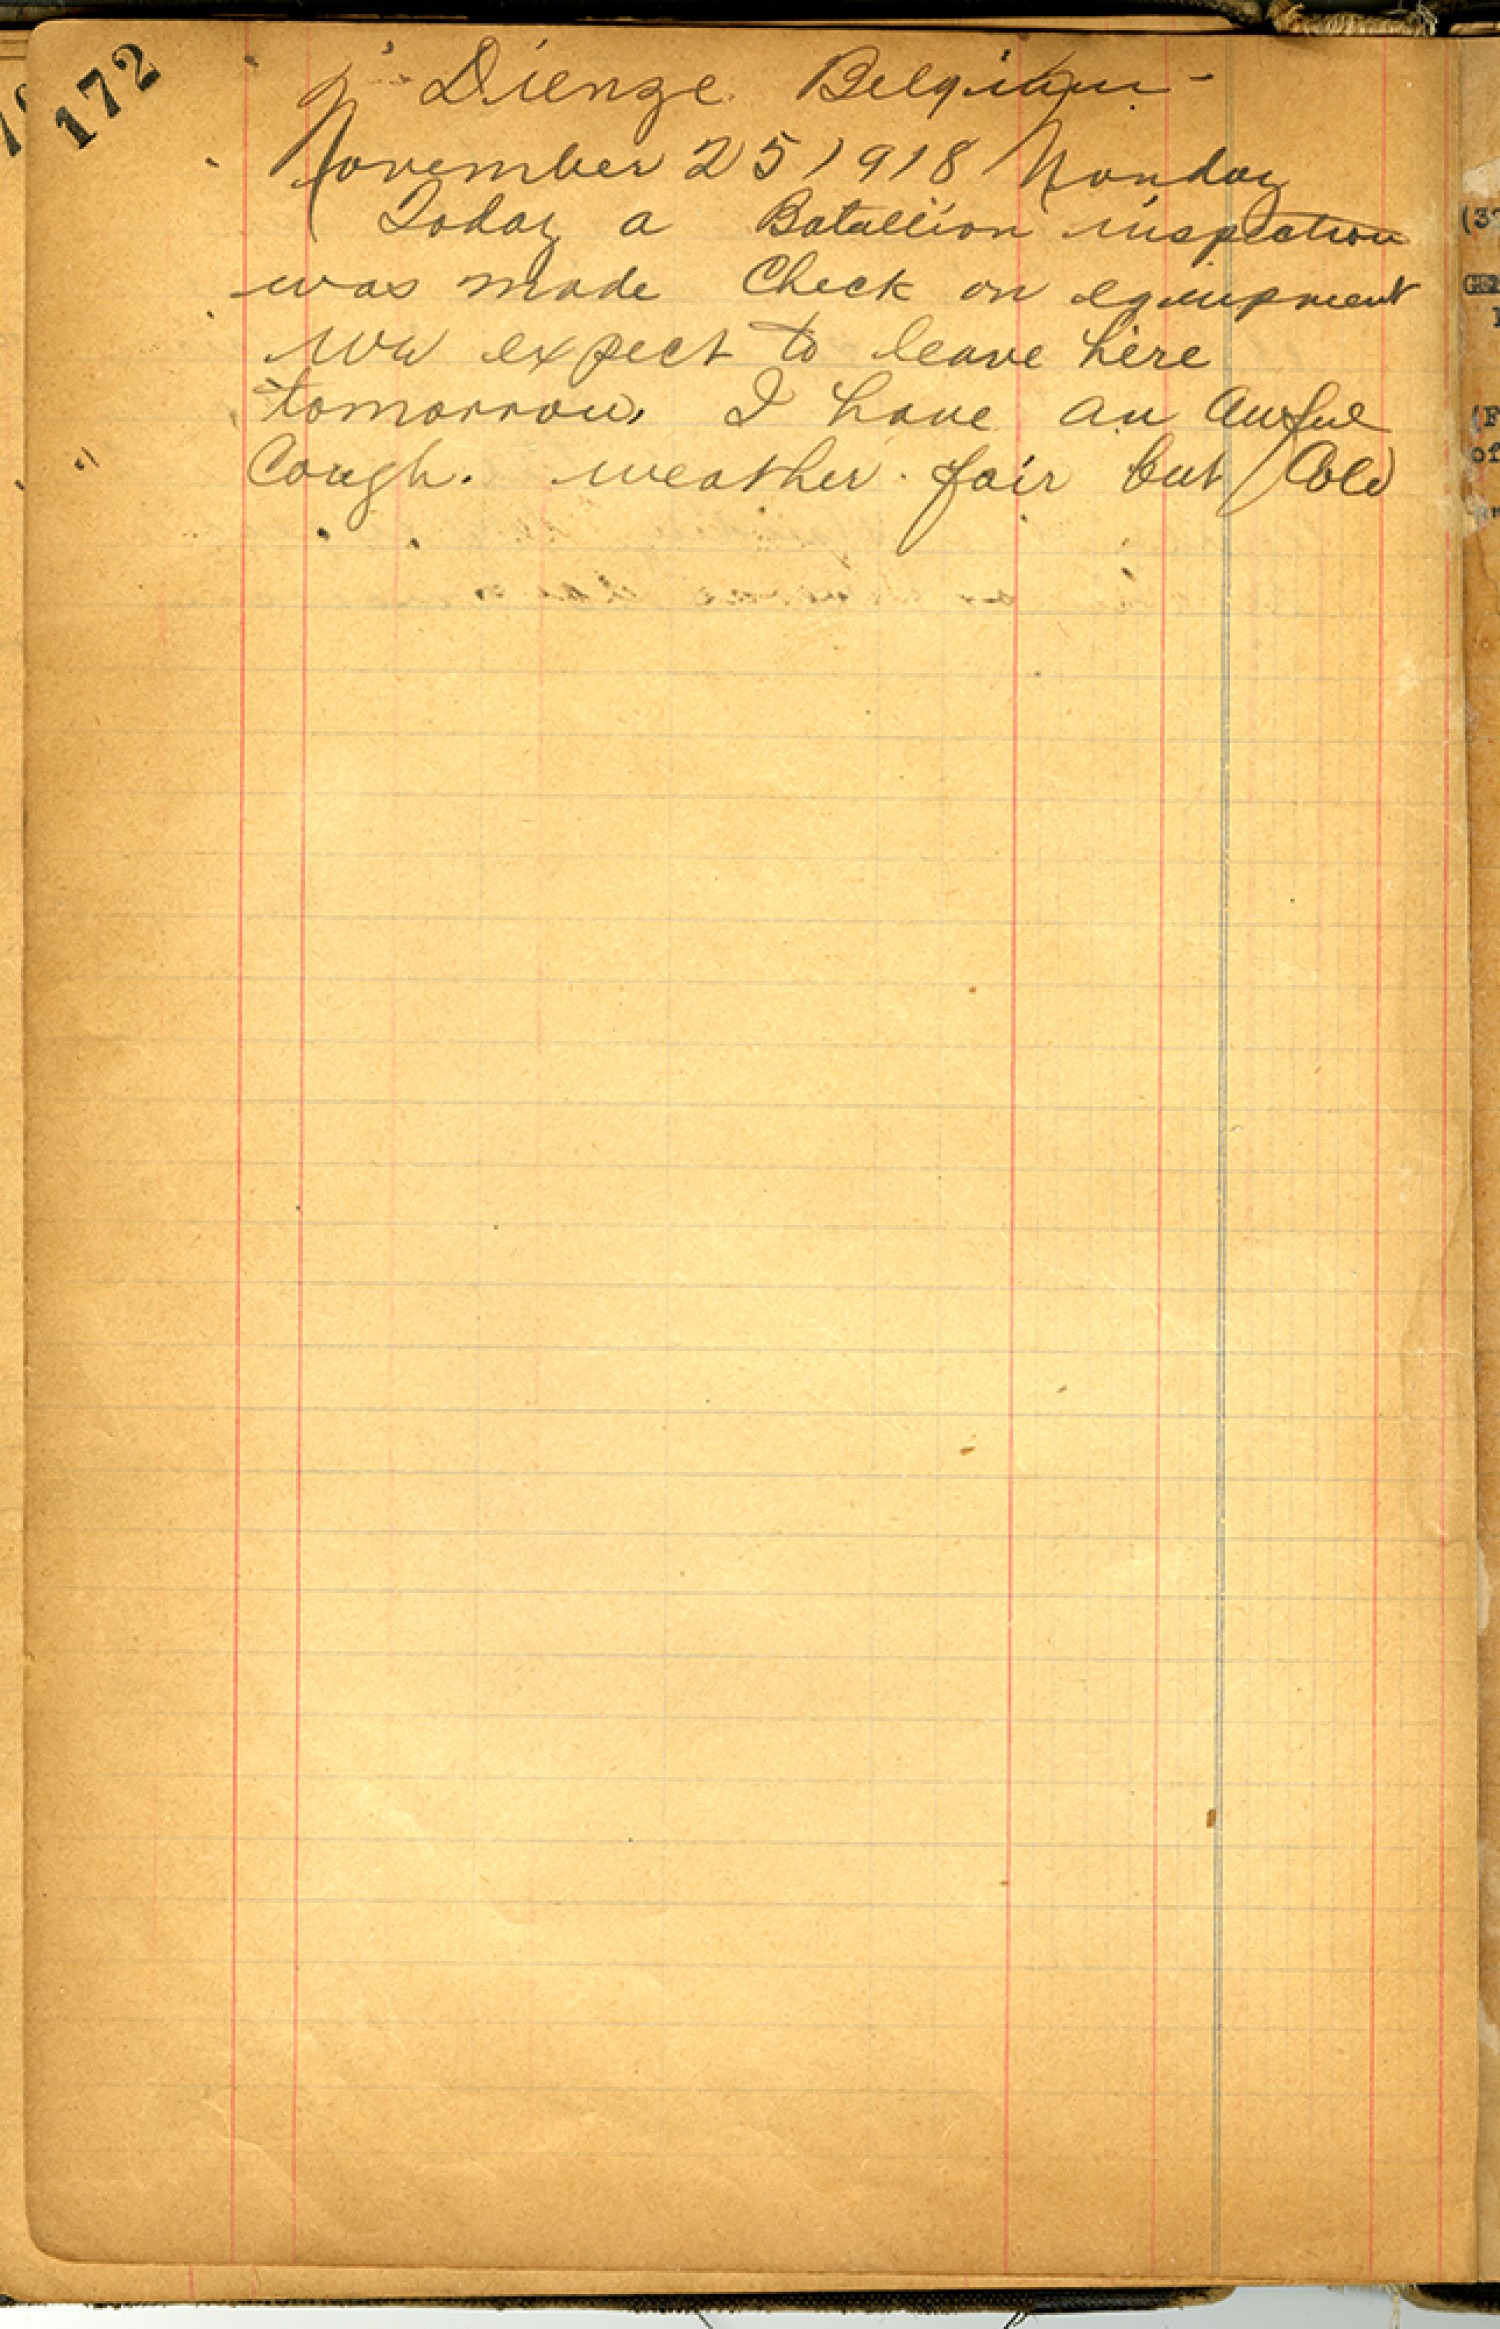 172
Dienze Belgium -
November 25 1918 Monday
Today a Batallion inspection
was made Check on equipment
We expect to leave here
tomorrow, I have an awful
Cough. weather. fair but Cold
(3
(F
of